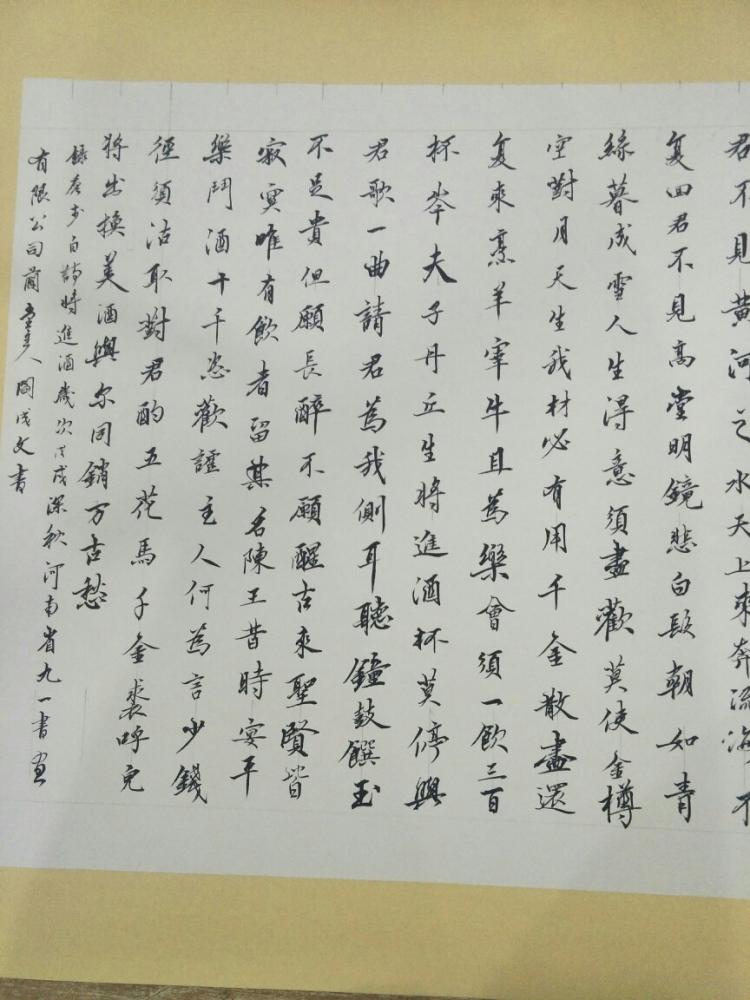 君不見黄河之水天上來奔流海不
复回君不見高堂明鏡悲白髮朝如青
絲暮成雪人生得意須盡歡莫使金樽
空對月天生我材必有用千金散盡還
复來烹羊宰牛且為樂會須一飲三百
杯岑夫子丹丘生將進酒杯莫停與
君歌一曲請君為我側耳聽鐘鼓饌玉
不足貴但願長醉不願醒古來聖賢皆
寂寞唯有飲者留其名陳王昔時宴平
樂鬥酒十千恣歡謔主人何為言少錢
徑須沽取對君酌五花馬千金裘呼兒
將出換美酒與尔同銷万古愁
錄唐李白詩將進酒歲次戊戌深秋河南省九一書画
有限公司主人文書